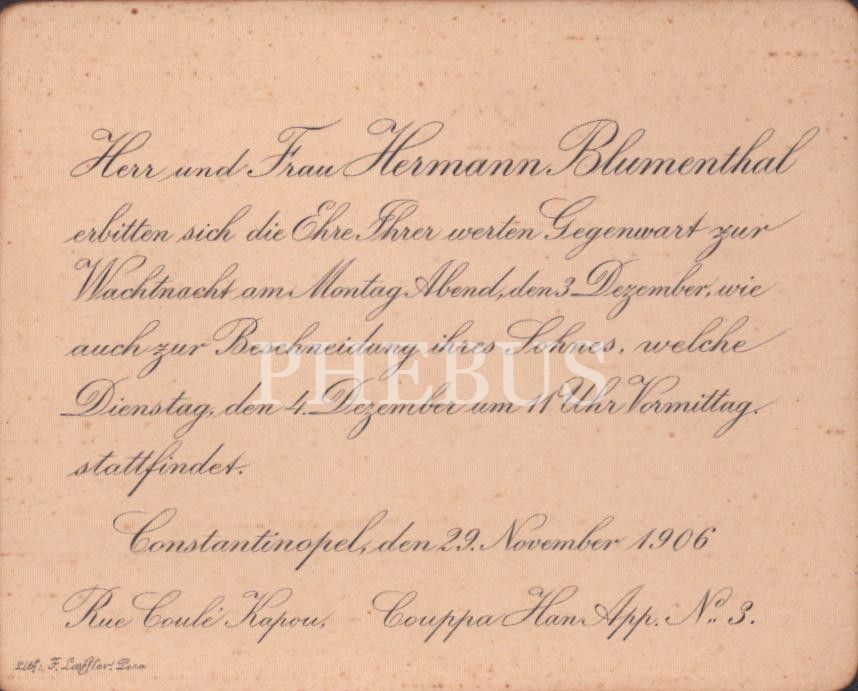 Herr und Frau Hermann Blumenthal
erbitten sich die Ehre Ihrer werten Gegenwart zur
Wachtnacht am Montag Abend, den 3. Dezember, wie
auch zur Beschneidung ihres Sohnes, welche
PHEBUS
Dienstag, den 4. Dezember um 11 Uhr Vormittag.
stattfindet.
Constantinopel, den 29. November 1906
Rue Coulé Kapou, Couppa Han App. No. 3.
Lith: F. Loeffler. Pera